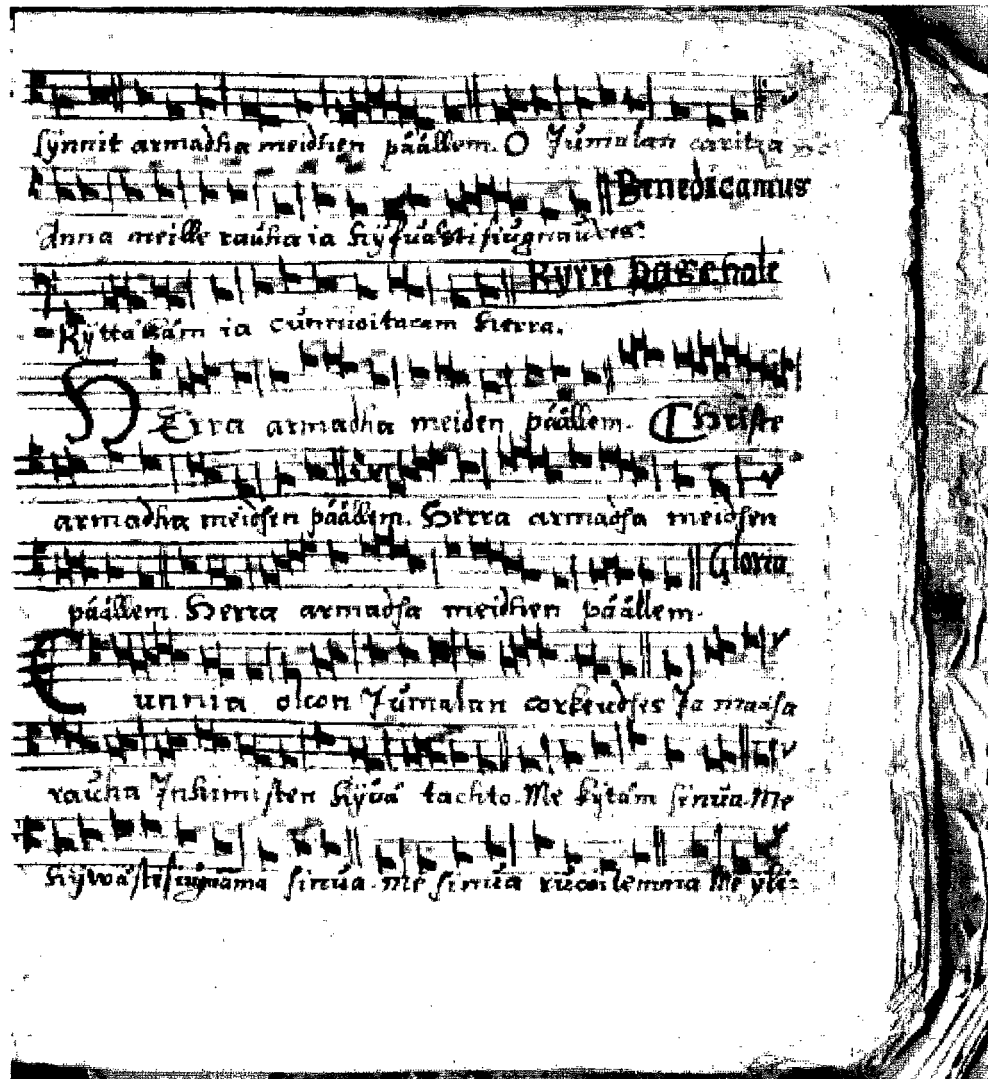 synnit armadha meidhen päällem. O Jumalan caritza
Benedicamus
Anna meille rauha ia hÿ siugnauxes:
Kyrie paschale
Kÿttäkäm ia cunnioitacam Herra.
HErra armadha meiden päällem. Christe
armadha meidhen päällem. Herra armadha meidhen
Gloria
päällem. Herra armadha meidhen päällem.
Cunnia olcon Jumalan corkeudhes Ja maasa
rauha Inhimisten hÿvä tachto. Me kÿtäm sinua. Me
sinua. Me sinua rucoilemma Me yli=